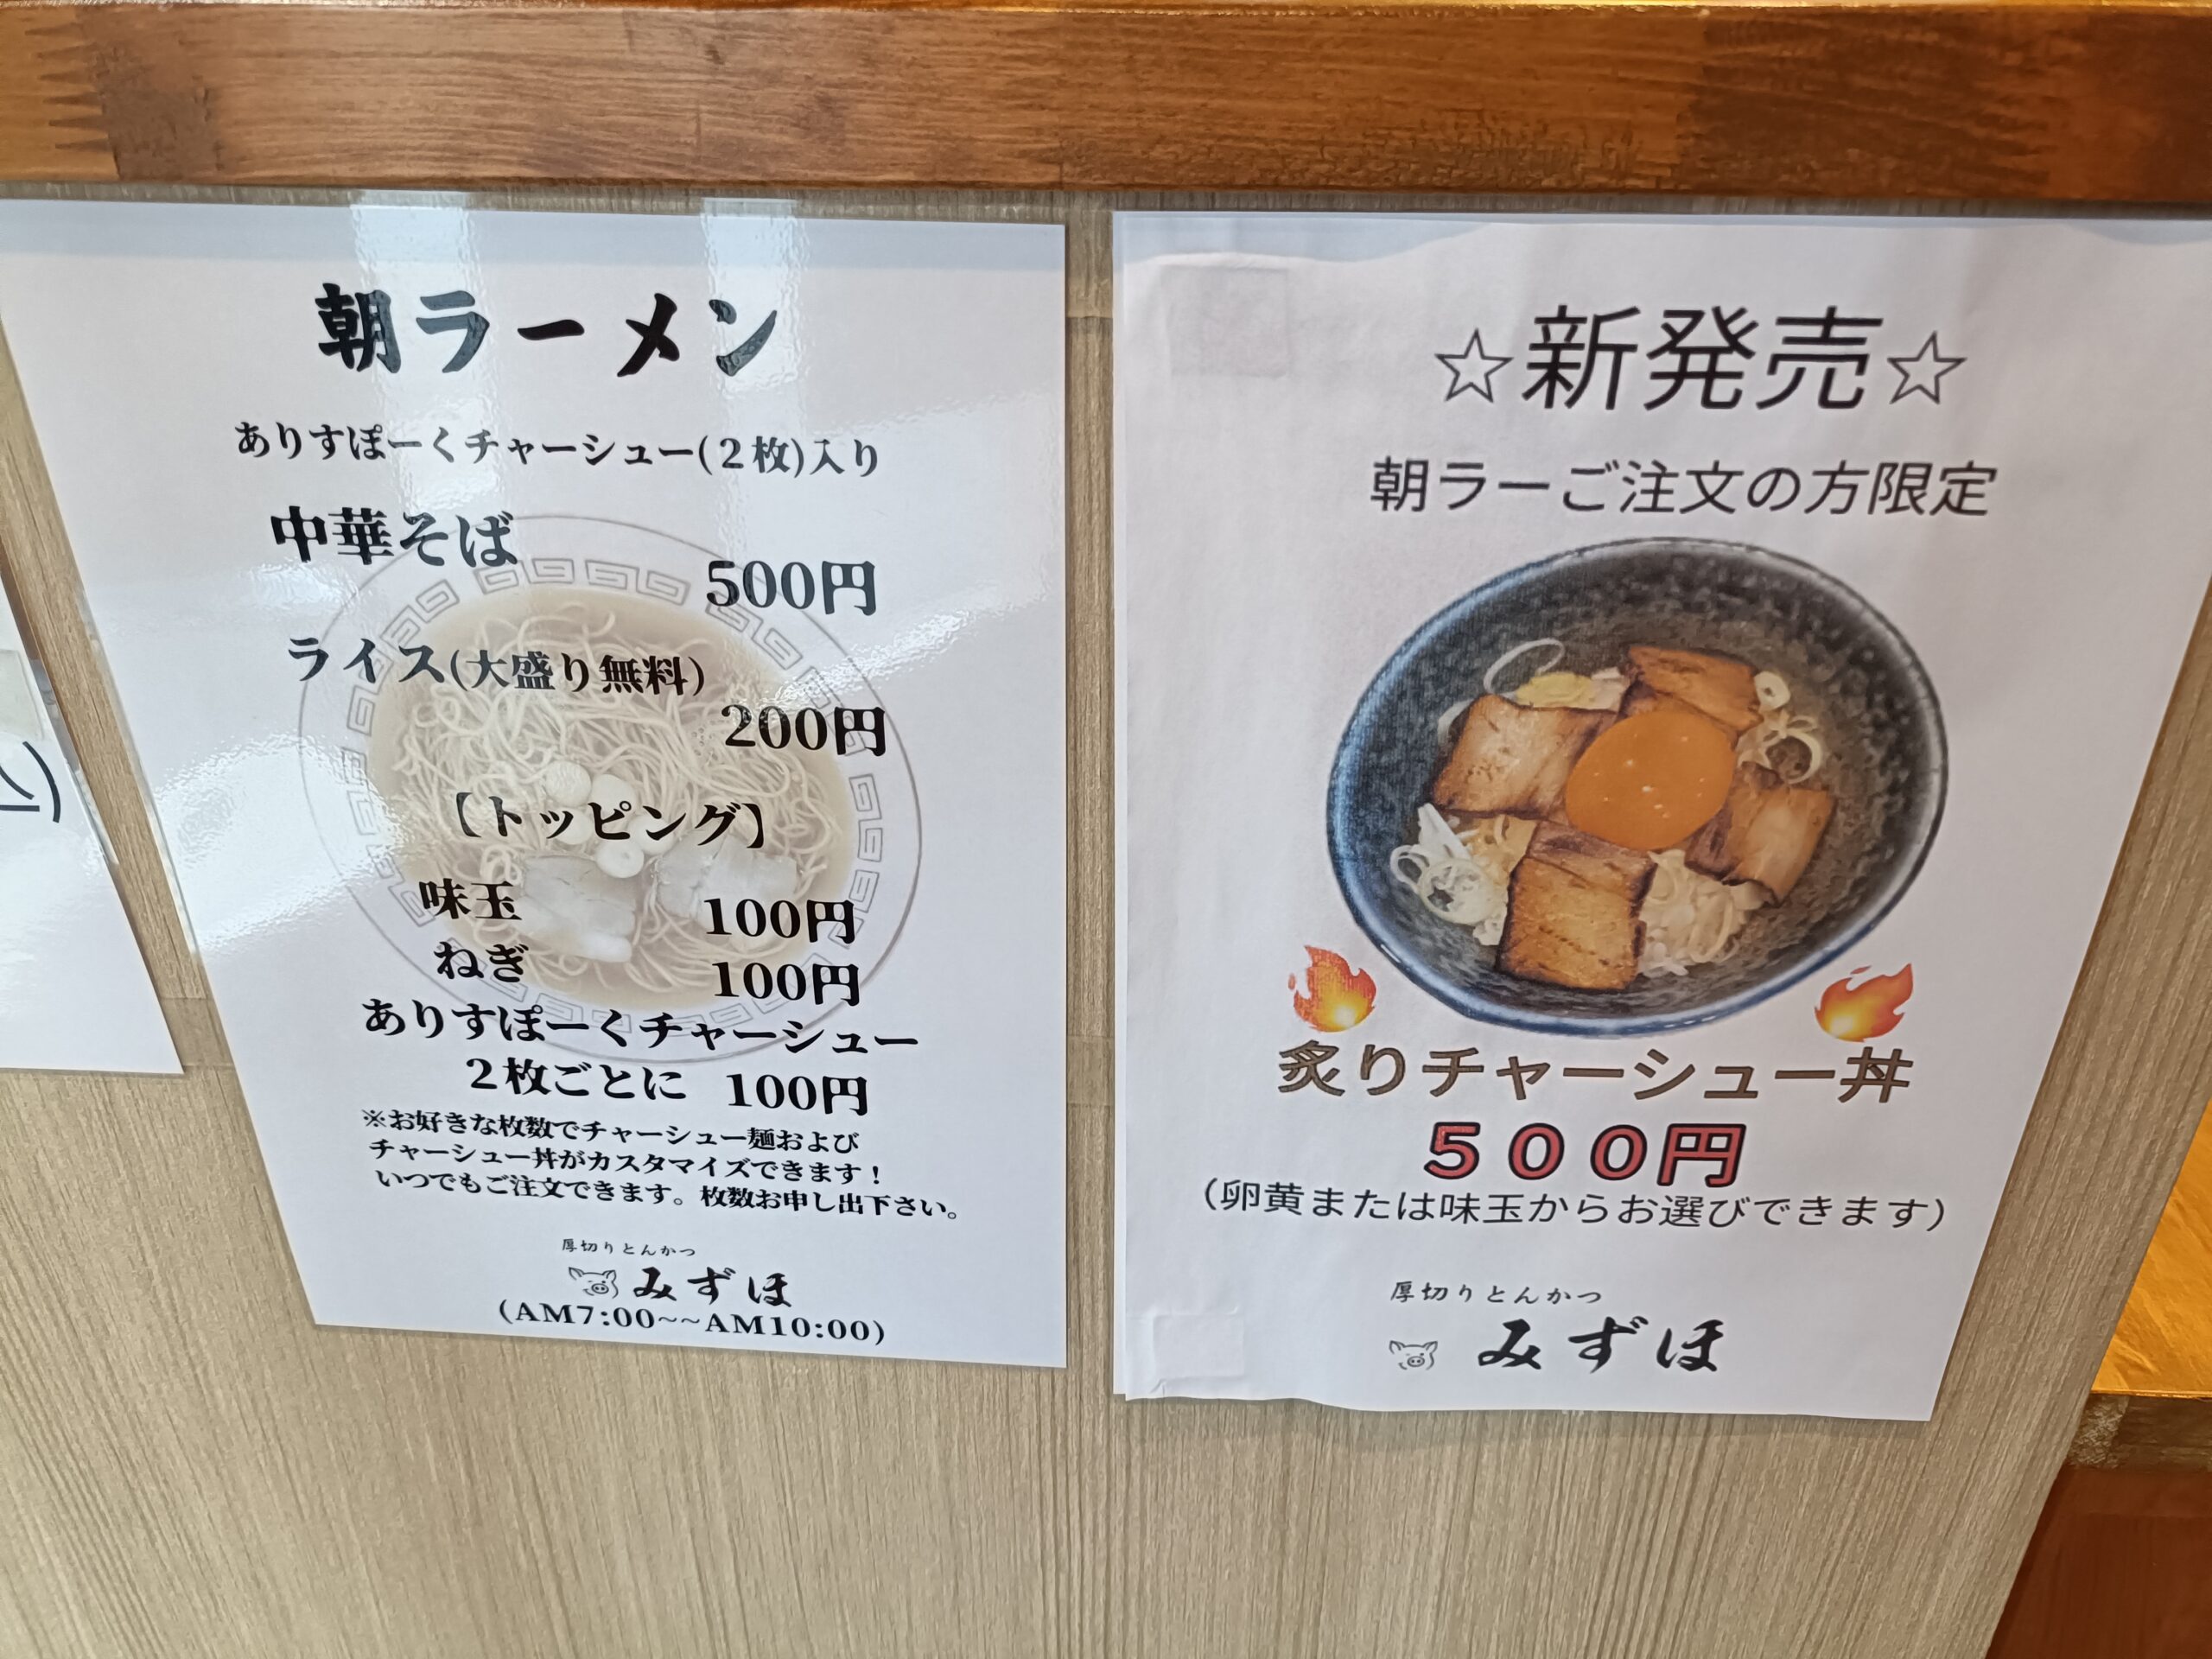 朝ラーメン
ありすぽーくチャーシュー(２枚)入り
中華そば
500円
ライス(大盛り無料)
200円
【トッピング】
味玉 100円
ねぎ 100円
ありすぽーくチャーシュー
２枚ごとに 100円
※お好きな枚数でチャーシュー麺および
チャーシュー丼がカスタマイズできます！
いつでもご注文できます。枚数お申し出下さい。
厚切りとんかつ
みずほ
(AM7:00~~AM10:00)
☆新発売☆
朝ラーご注文の方限定
炙りチャーシュー丼
５００円
（卵黄または味玉からお選びできます）
厚切りとんかつ
みずほ